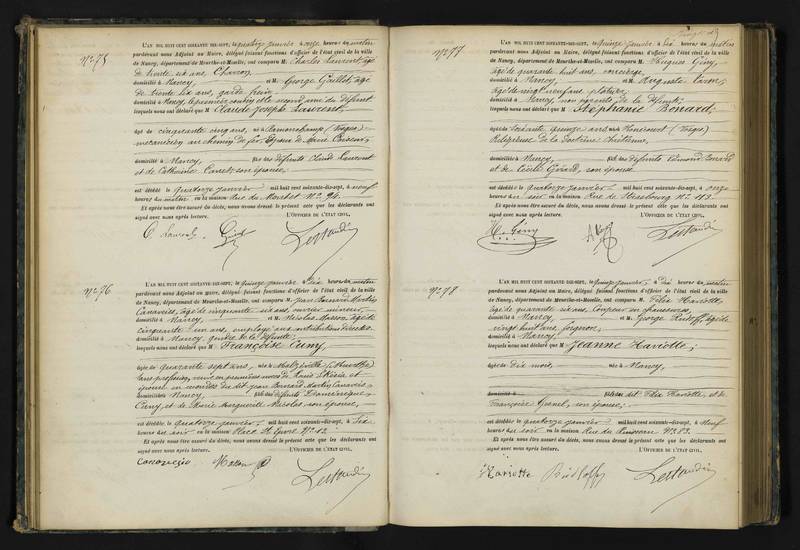 N° 75
L'AN MIL HUIT CENT SOIXANTE-DIX-SEPT, le quatorze janvier à onze heures du matin
pardevant nous Adjoint au Maire, délégué faisant fonctions d'officier de l'état civil de la ville
de Nancy, département de Meurthe-et-Moselle, ont comparu M. Charles Laurent, âgé
de trente six ans, Charron,
domicilié à Nancy, et M. George Gaillot, âgé
de trente six ans, garde frein
domicilié à Nancy, le premier cousin et le second ami du défunt
lesquels nous ont déclaré que M Claude Joseph Laurent,
âgé de cinquante cinq ans, né à Ramonchamp (Vosges)
mécanicien au chemin de fer, Epoux de Marie
domicilié à Nancy, fils des défunts Claude Laurent
et de Catherine son épouse,
est décédé le quatorze janvier mil huit cent soixante-dix-sept, à neuf
heures du matin en la maison Rue du Montet N° 94.
Et après nous être assuré du décès, nous avons dressé le présent acte que les déclarants ont
signé avec nous après lecture. L'OFFICIER DE L'ÉTAT CIVIL,
C Laurent
N° 76
L'AN MIL HUIT CENT SOIXANTE-DIX-SEPT, le quinze janvier à dix heures du matin
pardevant nous Adjoint au Maire, délégué faisant fonctions d'officier de l'état civil de la ville
de Nancy, département de Meurthe-et-Moselle, ont comparu M. Jean Bernard Martin
âgé de cinquante six ans, ouvrier mineur
domicilié à Nancy et M. Nicolas Masson, âgé de
cinquante un ans, employé aux contributions directes
domicilié à Nancy, gendre de la défunte;
lesquels nous ont déclaré que M Françoise Cuny,
âgée de quarante sept ans, née à Malzéville (Meurthe)
sans profession, veuve en premières noces de Louis et
épouse en secondes du dit Jean Bernard Martin
domiciliée à Nancy, fille des défunts Dominique
Cuny et de Marie Marguerite Nicolas son épouse,
est décédée le quatorze janvier mil huit cent soixante-dix-sept, à six
heures du soir en la maison Place St Epvre N° 12
Et après nous être assuré du décès, nous avons dressé le présent acte que les déclarants ont
signé avec nous après lecture. L'OFFICIER DE L'ÉTAT CIVIL,
Masson
N° 77
L'AN MIL HUIT CENT SOIXANTE-DIX-SEPT, le quinze janvier à dix heures du matin
pardevant nous Adjoint au Maire, délégué faisant fonctions d'officier de l'état civil de la ville
de Nancy, département de Meurthe-et-Moselle, ont comparu M. Hugues Gény,
âgé de quarante huit ans, concierge,
domicilié à Nancy et M. Auguste
âgé de vingt neuf ans, plâtrier
domicilié à Nancy, non parents de la défunte;
lesquels nous ont déclaré que M Stéphanie Bonard,
âgée de soixante quinze ans née à (Vosges)
Religieuse de la Doctrine chrétienne,
domiciliée à Nancy, fille des défunts Edmond Bonard
et de Cécile Gérard, son épouse
est décédée le quatorze janvier mil huit cent soixante-dix-sept, à onze
heures du soir en la maison Rue de Strasbourg N° 113
Et après nous être assuré du décès, nous avons dressé le présent acte que les déclarants ont
signé avec nous après lecture. L'OFFICIER DE L'ÉTAT CIVIL,
H. Gény
N° 78
L'AN MIL HUIT CENT SOIXANTE-DIX-SEPT, le quinze janvier, à dix heures du matin
pardevant nous Adjoint au Maire, délégué faisant fonctions d'officier de l'état civil de la ville
de Nancy, département de Meurthe-et-Moselle, ont comparu M. Félix Hariotte,
âgé de quarante six ans, Coupeur en chaussures,
domicilié à Nancy et M. George Rudolff, âgé de
vingt huit ans, forgeron,
domicilié à Nancy;
lesquels nous ont déclaré que M Jeanne Hariotte;
âgée de dix mois, née à Nancy,
domiciliée à fille du dit Félix Hariotte, et de
Françoise son épouse;
est décédée le quatorze janvier mil huit cent soixante-dix-sept, à neuf
heures du soir en la maison Rue du Ruisseau N° 82.
Et après nous être assuré du décès, nous avons dressé le présent acte que les déclarants ont
signé avec nous après lecture. L'OFFICIER DE L'ÉTAT CIVIL,
Hariotte